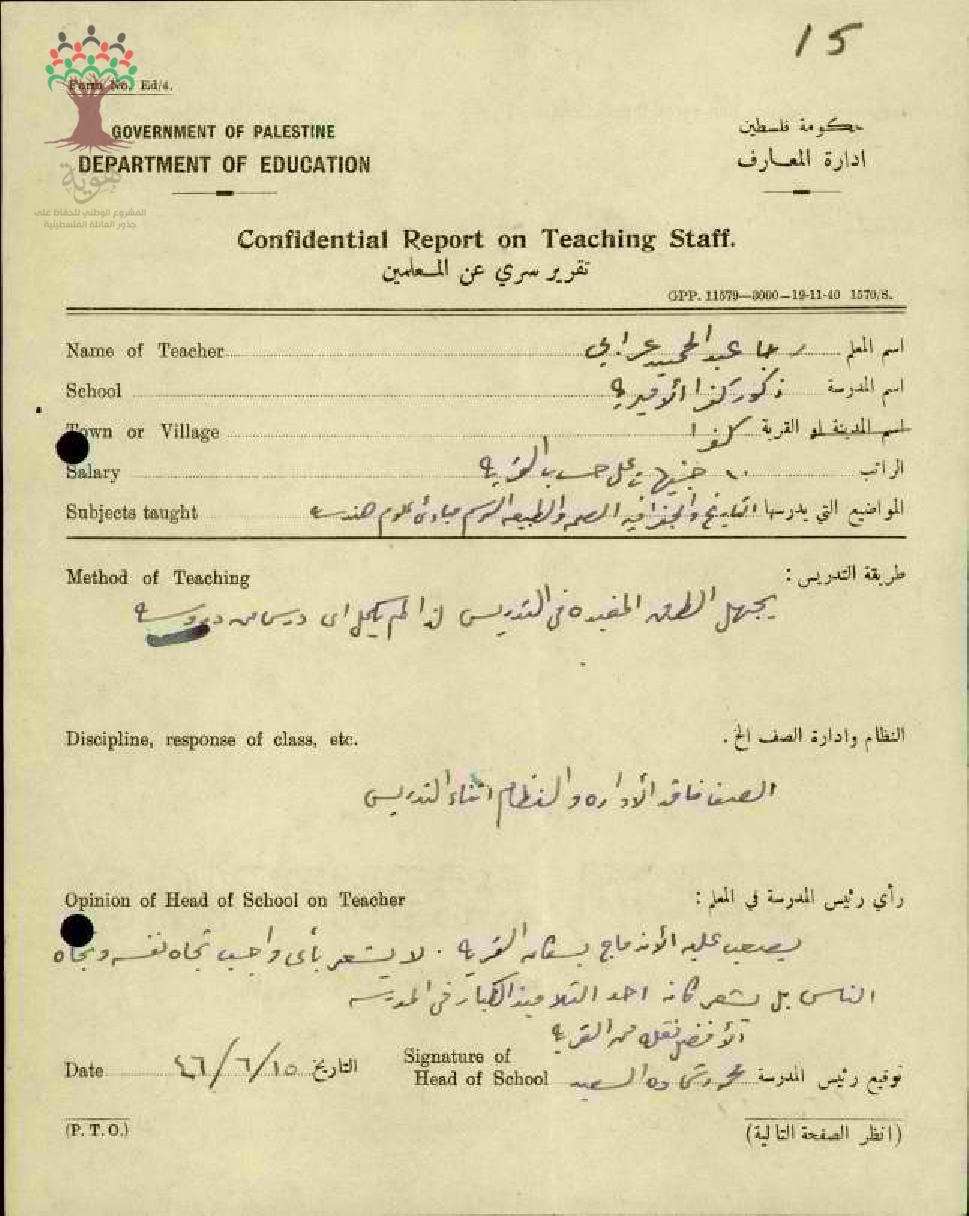 15
Form No. Ed/4.
GOVERNMENT OF PALESTINE
حكومة فلسطين
DEPARTMENT OF EDUCATION
ادارة المعارف
هوية
المشروع الوطني للحفاظ على
جذور العائلة الفلسطينية
Confidential Report on Teaching Staff.
تقرير سري عن المعلمين
GPP. 11579—3000—19-11-40 1570/S.
Name of Teacher رجا عبد الحميد عرابي اسم المعلم
School ذكور كفرا الأميرية اسم المدرسة
Town or Village كفرا اسم المدينة او القرية
Salary ١٠ جنيهات على حساب القرية الراتب
Subjects taught التاريخ والجغرافيه الصحه والطبيعه الرسم مبادئ علوم هندسه المواضيع التي يدرسها
Method of Teaching طريقة التدريس :
يجهل الطرق المفيده في التدريس لذا لم يكمل اى درس من دروسه
Discipline, response of class, etc. النظام وادارة الصف الخ .
الصف فاقد الأداره والنظام اثناء التدريس
Opinion of Head of School on Teacher رأي رئيس المدرسة في المعلم :
يصعب عليه الأندماج بسكان القرية . لا يشعر بأى واجب تجاه نفسه وتجاه
الناس بل يشعر كأنه احد التلاميذ الكبار في المدرسه
الأفضل نقله من القرية
Date ٤٦/٦/١٥ التاريخ Signature of Head of School السعيد توقيع رئيس المدرسة
(P. T. O.) (انظر الصفحة التالية)